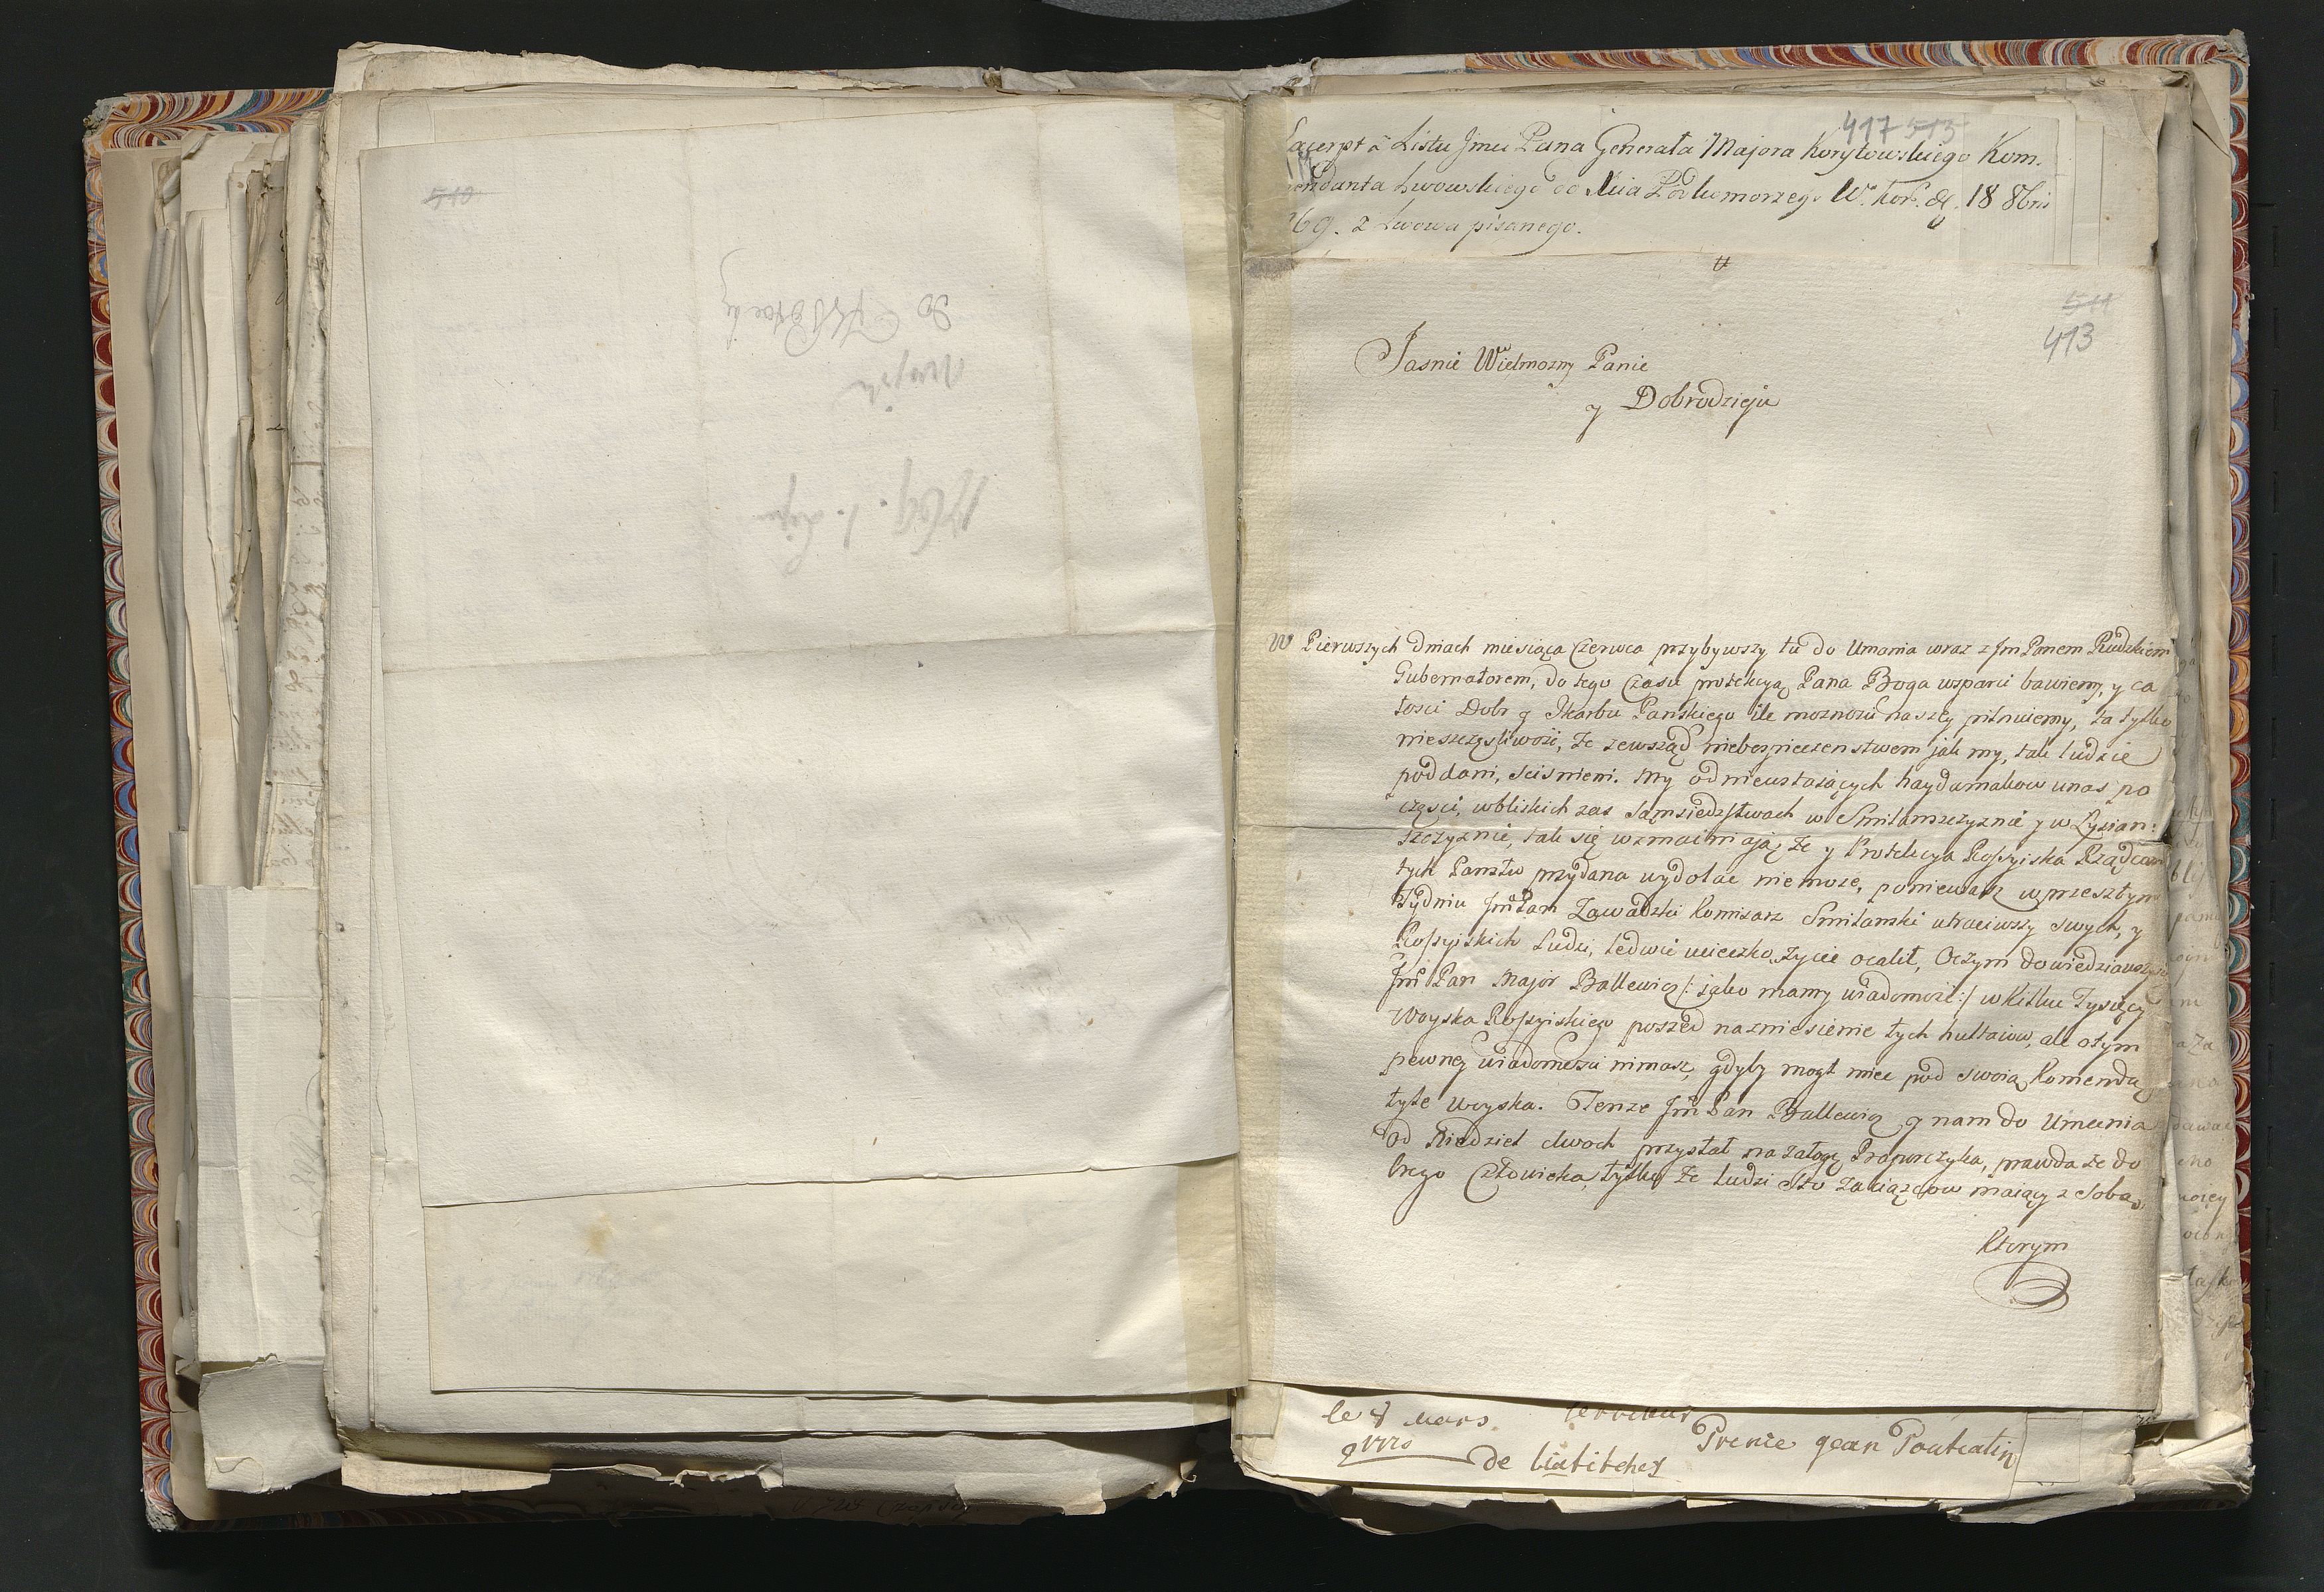 510
417 513
Excerpt à Listu Jmci Pana Generała Majora Korytowskiego Kom.
mendanta Lwowskiego do Mia Podkomorzego W. Kor. 18 8bris
769. z Lwowa pisanego.
511
413
Jasnie Wielmozny Panie
y Dobrodzieju
W Pierwszych dniach miesiąca Czerwca przybywszy tu do Umania wraz z Jm Panem Rudzkiem
Gubernatorem, do tego Czasu protekcyą Pana Boga wsparci bawiemy, y ca
łosci Dobr y Skarbu Panskiego ile moznosci naszey pilnuiemy, ta tylko
nieszczęsliwosc, że zewsząd niebezpieczenstwem jak my, tak ludzie
poddani, scisnieni. My od nieustaiących haydamakow u nas po
części, w bliskich zas Sąmsiedztwach w Smilanszczyznie y w Lysian:
szczyznie, tak się wzmacniaią, że y Protekcya Rossyiska Rządcom
tych Panstw przydana wydołac nie moze, poniewasz w przeszłym
Tydniu Jm Pan Zawadzki Komisarz Smilanski utraciwszy swych, y
Rossyiskich Ludzi, ledwie ucieczką życie ocalił, Oczym dowiedziawszy się
Jm Pan Major Ballewicz /: jako mamy wiadomosc :/ w Kilku Tysięcy
Woyska Rossyiskiego poszed na zniesienie tych hultaiow, ale o tym
pewney wiadomosci nimasz, gdyby mogł miec pod swoią Komendą
tyle woyska. Tenze Jm Pan Ballewicz y nam do Umania
od Niedziel dwoch przysłał na załogę Praporczyka, prawda że do
brego Człowieka, tylko że ludzi Sto Zaciązcow maiący z sobą,
Ktorym
le 8 mars
1770
de liatitchez
Prence jean Poutiatin